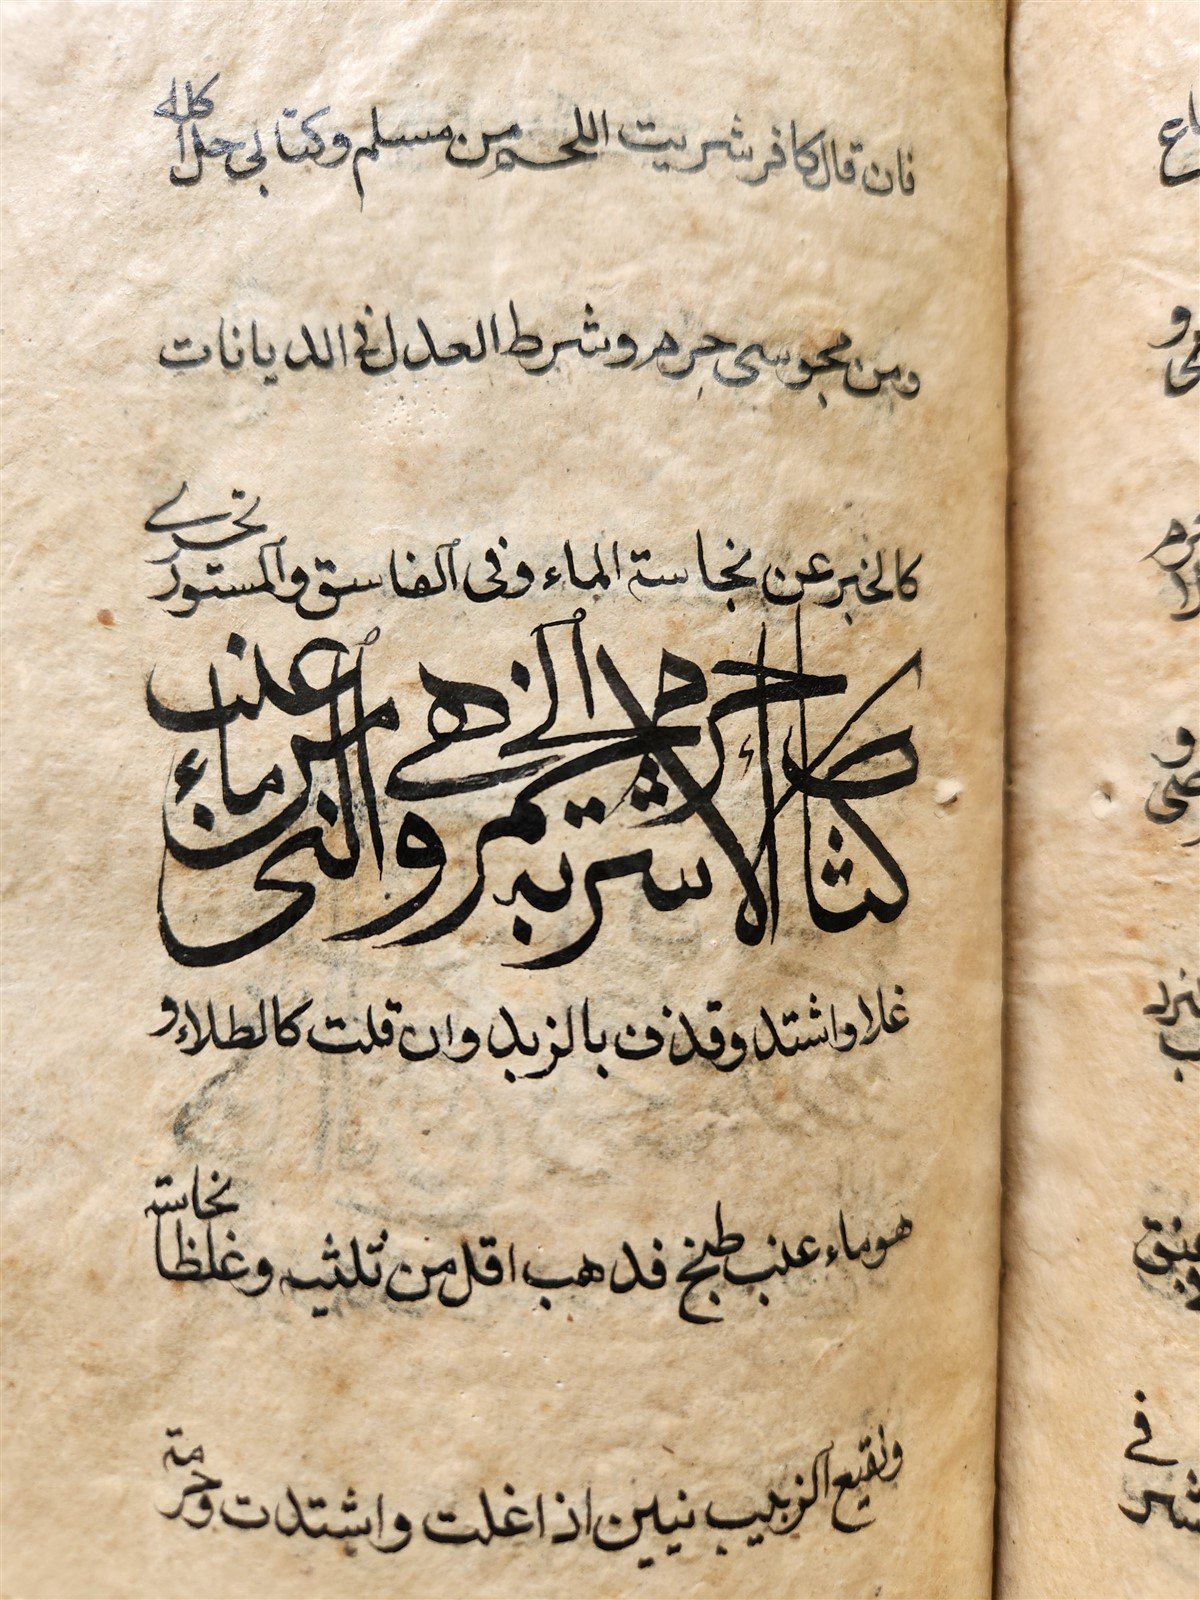 فان قال كافر شريت اللحم من مسلم وكتابي حل اكله
ومن مجوسى حرم وشرط العدل فى الديانات
كالخبر عن نجاسة الماء وفى الفاسق والمستور تحرى
كتاب الاشربة حرم الخمر وهي النى من ماء عنب
غلا واشتد وقذف بالزبد وان قلت كالطلاء و
هو ماء عنب طبخ فذهب اقل من ثلثيه وغلظا نجاسة
ونقيع الزبيب نيين اذا غلت واشتدت وحرمة